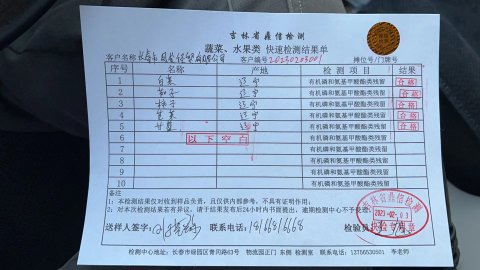 吉林省鼎信检测
蔬菜、水果类 快速检测结果单
客户名称 长春市 客户编号 2023020300 摊位号/门牌号
序号 名称 产地 检测项目 结果
1 白菜 辽宁 有机磷和氨基甲酸酯类残留 合格
2 茄子 辽宁 有机磷和氨基甲酸酯类残留 合格
3 柿子 辽宁 有机磷和氨基甲酸酯类残留 合格
4 辽宁 有机磷和氨基甲酸酯类残留 合格
5 甘蓝 辽宁 有机磷和氨基甲酸酯类残留 合格
6 以下空白 有机磷和氨基甲酸酯类残留
7 有机磷和氨基甲酸酯类残留
8 有机磷和氨基甲酸酯类残留
9 有机磷和氨基甲酸酯类残留
10 有机磷和氨基甲酸酯类残留
备注
1：本检测结果仅对收到样品负责，且仅供内部参考，不具有证明作用；
2：对本次检测结果若有异议，请于结果发布后24小时内书面提出，逾期检测中心不予受理。
吉林省鼎信检测
2023-02-03
快检专用章
送样人签字： 联系电话：18166816668 检验员：
检测中心地址：长春市绿园区青冈路03号 物流园正门 东侧 检测室 联系电话：13756530501 李老师